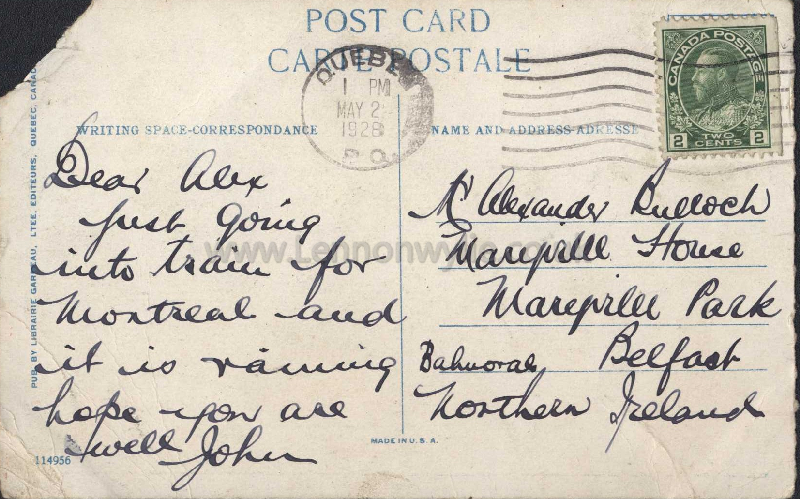 POST CARD
CARTE POSTALE
QUEBEC
1 PM
MAY 2
1928
P.Q.
CANADA POSTAGE
2 TWO CENTS 2
WRITING SPACE-CORRESPONDANCE
NAME AND ADDRESS-ADRESSE
Dear Alex
just going
into train for
Montreal and
it is raining
hope you are
well John
Mr Alexander Bulloch
House
Park
Balmoral, Belfast
Northern Ireland
PUB. BY LIBRAIRIE GARNEAU, LTEE, EDITEURS, QUEBEC, CANADA
MADE IN U.S.A.
114956